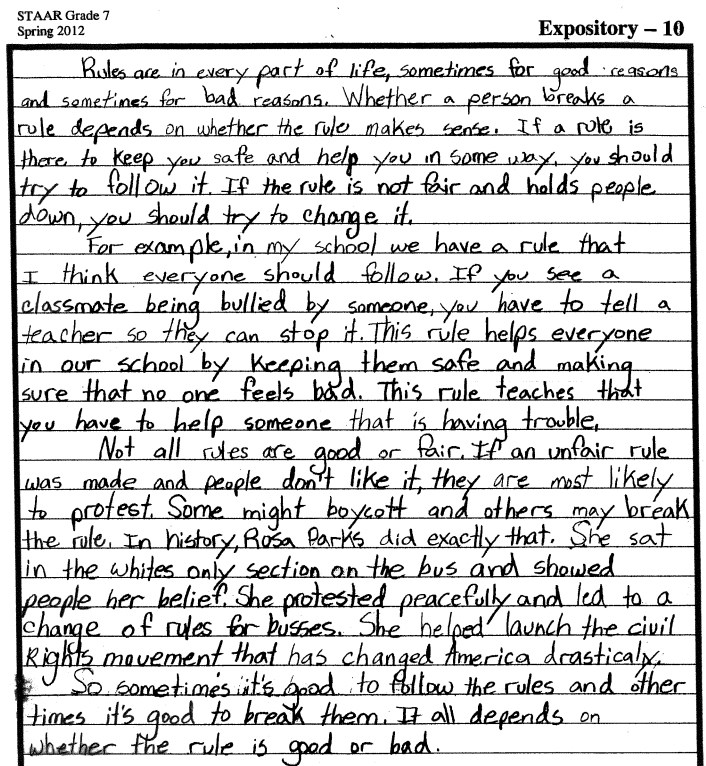 STAAR Grade 7
Spring 2012
Expository – 10
Rules are in every part of life, sometimes for good reasons
and sometimes for bad reasons. Whether a person breaks a
rule depends on whether the rule makes sense. If a rule is
there to keep you safe and help you in some way, you should
try to follow it. If the rule is not fair and holds people
down, you should try to change it.
For example, in my school we have a rule that
I think everyone should follow. If you see a
classmate being bullied by someone, you have to tell a
teacher so they can stop it. This rule helps everyone
in our school by keeping them safe and making
sure that no one feels bad. This rule teaches that
you have to help someone that is having trouble.
Not all rules are good or fair. If an unfair rule
was made and people don't like it, they are most likely
to protest. Some might boycott and others may break
the rule. In history, Rosa Parks did exactly that. She sat
in the whites only section on the bus and showed
people her belief. She protested peacefully and led to a
change of rules for busses. She helped launch the civil
Rights movement that has changed America drasticaly.
So sometimes it's good to follow the rules and other
times it's good to break them. It all depends on
whether the rule is good or bad.